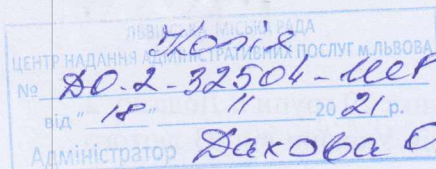 ЛЬВІВСЬКА МІСЬКА РАДА
Копія
ЦЕНТР НАДАННЯ АДМІНІСТРАТИВНИХ ПОСЛУГ м.ЛЬВОВА
№ ДО-2-32504-
від "18" 11 2021 р.
Адміністратор Дахова О